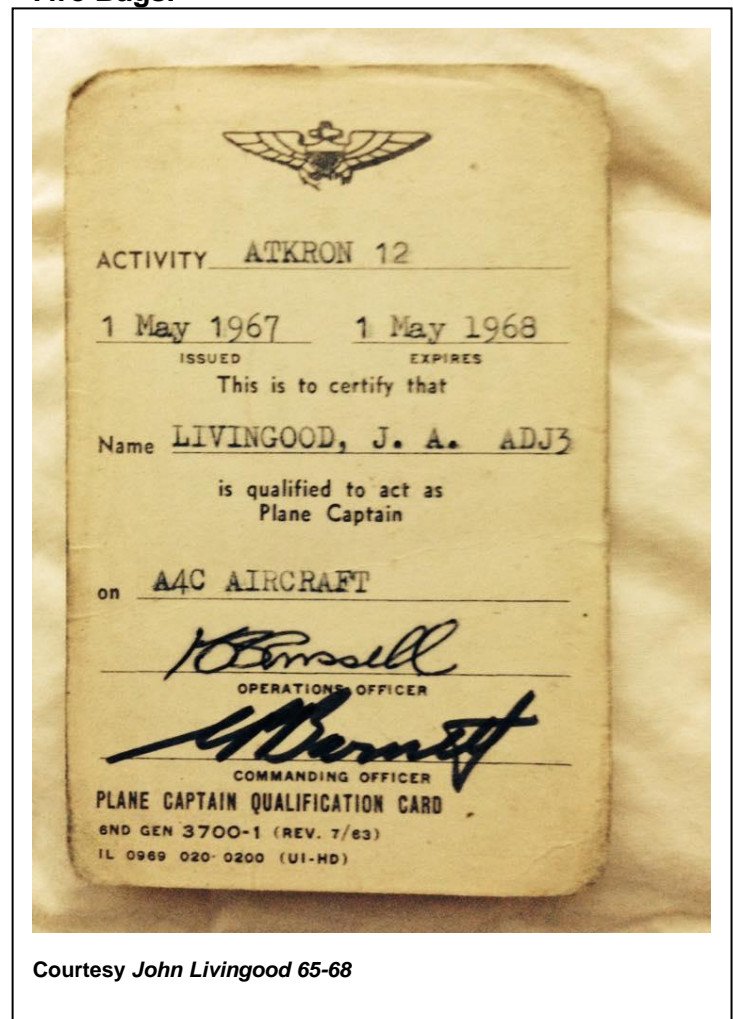 ACTIVITY ATKRON 12
1 May 1967 1 May 1968
ISSUED EXPIRES
This is to certify that
Name LIVINGOOD, J. A. ADJ3
is qualified to act as
Plane Captain
on A4C AIRCRAFT
OPERATIONS OFFICER
COMMANDING OFFICER
PLANE CAPTAIN QUALIFICATION CARD
6ND GEN 3700-1 (REV. 7/63)
IL 0969 020-0200 (UI-HD)
Courtesy John Livingood 65-68